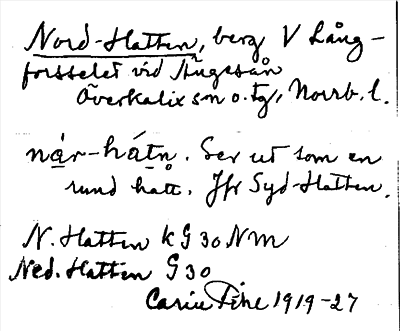 Nord-Hatten, berg V Lång-
forsselet vid Ängesån
Överkalix sn o. tg, Norrb. l.
når-hátn. Ser ut som en
rund hatt. Jfr Syd-Hatten.
N. Hatten k G 30 NM
Ned. Hatten G 30
1919-27